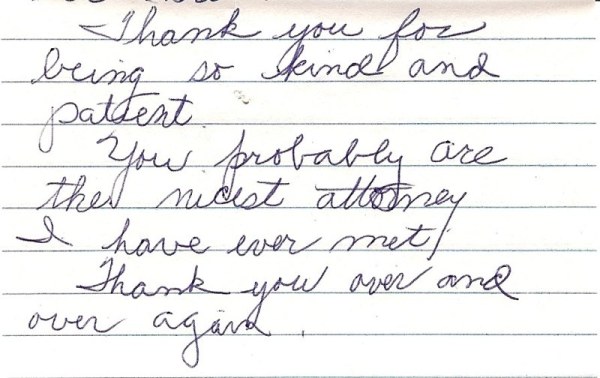 Thank you for
being so kind and
patient.
You probably are
the nicest attorney
I have ever met!
Thank you over and
over again.